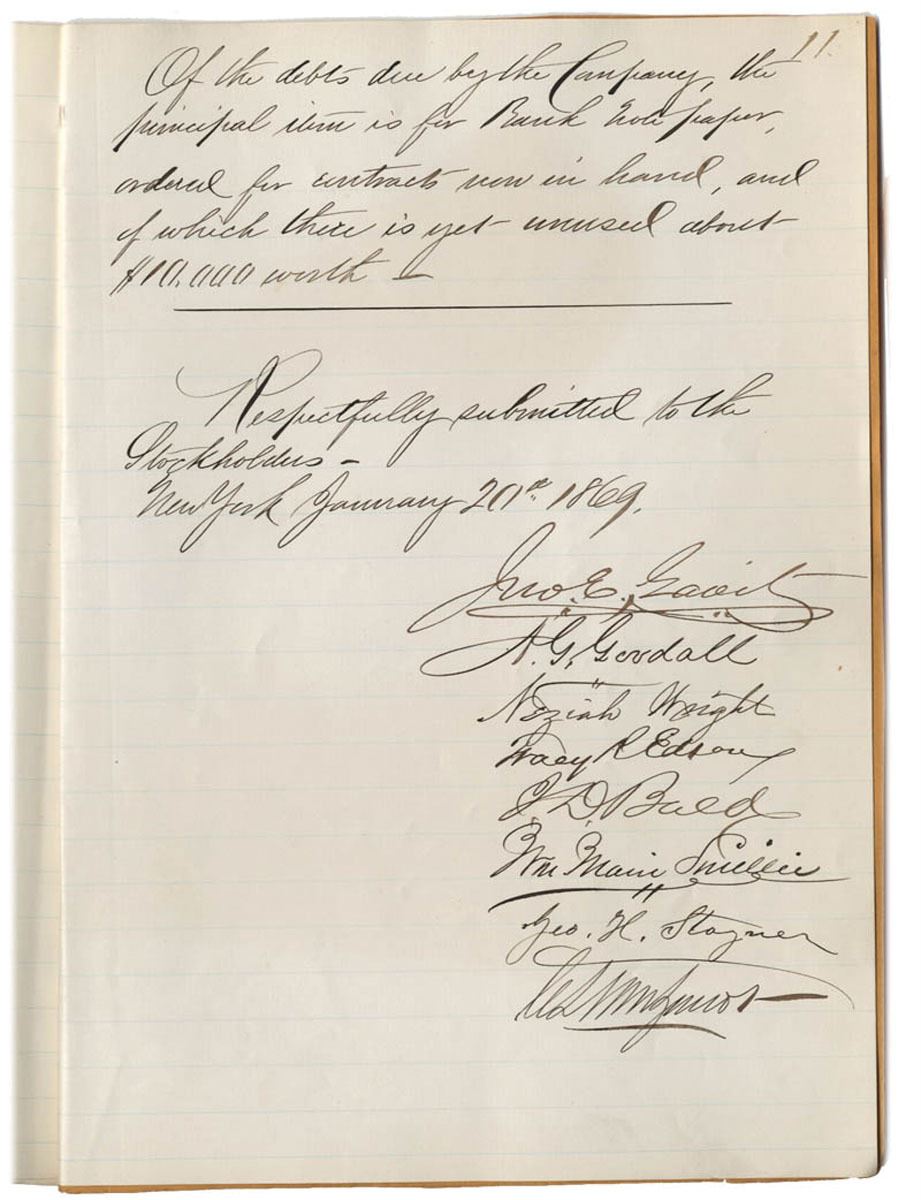 11.
Of the debts due by the Company, the
principal item is for Bank Note paper,
ordered for contracts now in hand, and
of which there is yet unused about
$10,000 worth —
Respectfully submitted to the
Stockholders –
New York January 20th 1869.
Jno. E. Gavit
A. G. Goodall
Neziah Wright
Tracy R Edson
J. D. Bald
Wm Main Smillie
Geo. H. Stayner